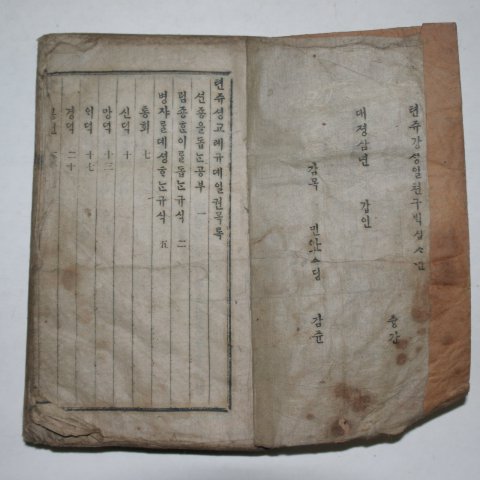 텬쥬강생일천구백십사년
대정삼년 갑인
감목 민아오스딩 감쥰
즁간
텬쥬셩교례규뎨일권목록
션죵을돕는공부 一
림죵흔이를돕는규식 二
병쟈를뎨셩흐는규식 五
통회 七
신덕 十
망덕 十三
애덕 十七
겸덕 二十